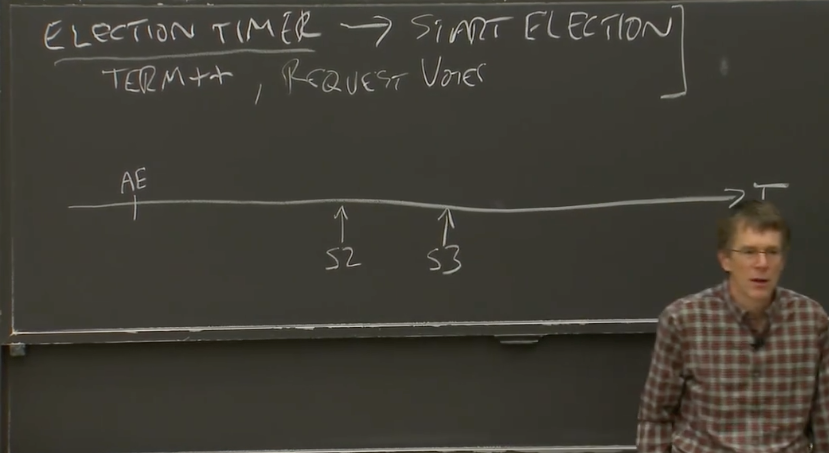 ELECTION TIMER → START ELECTION
TERM++, REQUEST VOTES
AE
T
S2 S3